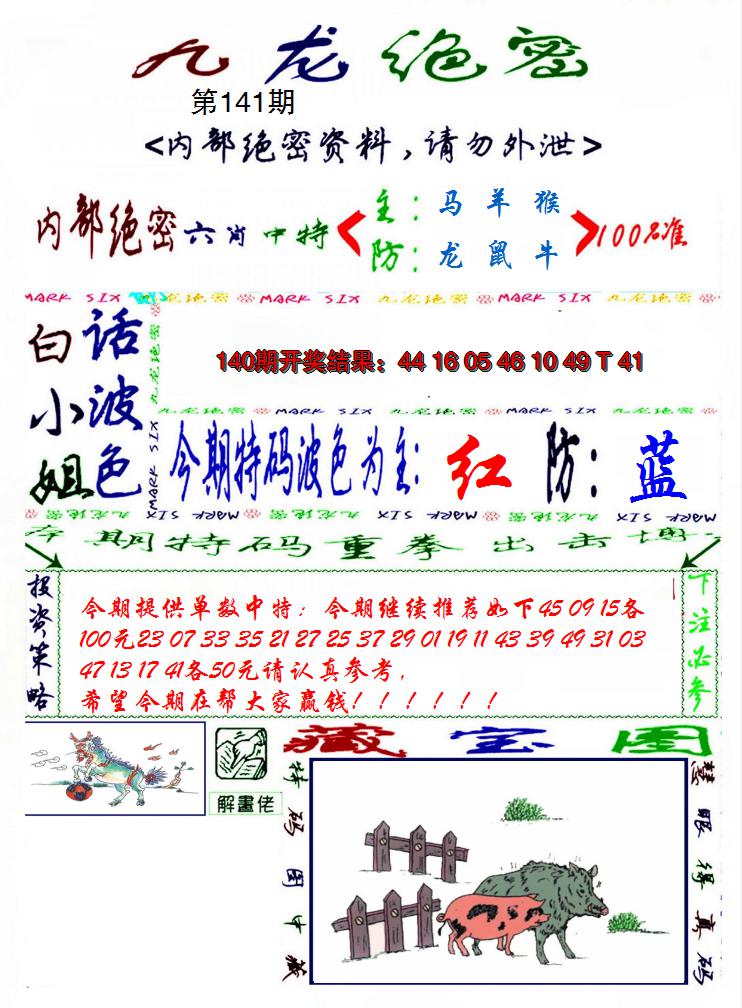 九龙绝密
第141期
<内部绝密资料,请勿外泄>
内部绝密六肖中特
主:马羊猴
防:龙鼠牛
100%准
MARK SIX 九龙绝密 MARK SIX 九龙绝密 MARK SIX 九龙绝密
白小姐
话波色
九龙绝密
MARK SIX
140期开奖结果：44 16 05 46 10 49 T 41
九龙绝密 MARK SIX 九龙绝密 MARK SIX 九龙绝密 MARK SIX
今期特码波色为主:红 防:蓝
MARK SIX 九龙绝密 MARK SIX 九龙绝密 MARK SIX
本期特码重拳出击博
投资策略
今期提供单数中特：今期继续推荐如下45 09 15各
100元23 07 33 35 21 27 25 37 29 01 19 11 43 39 49 31 03
47 13 17 41各50元请认真参考,
希望今期在帮大家赢钱!！！！！！
下注必参
解畫佬
藏宝图
特码图中藏
慧眼得真码